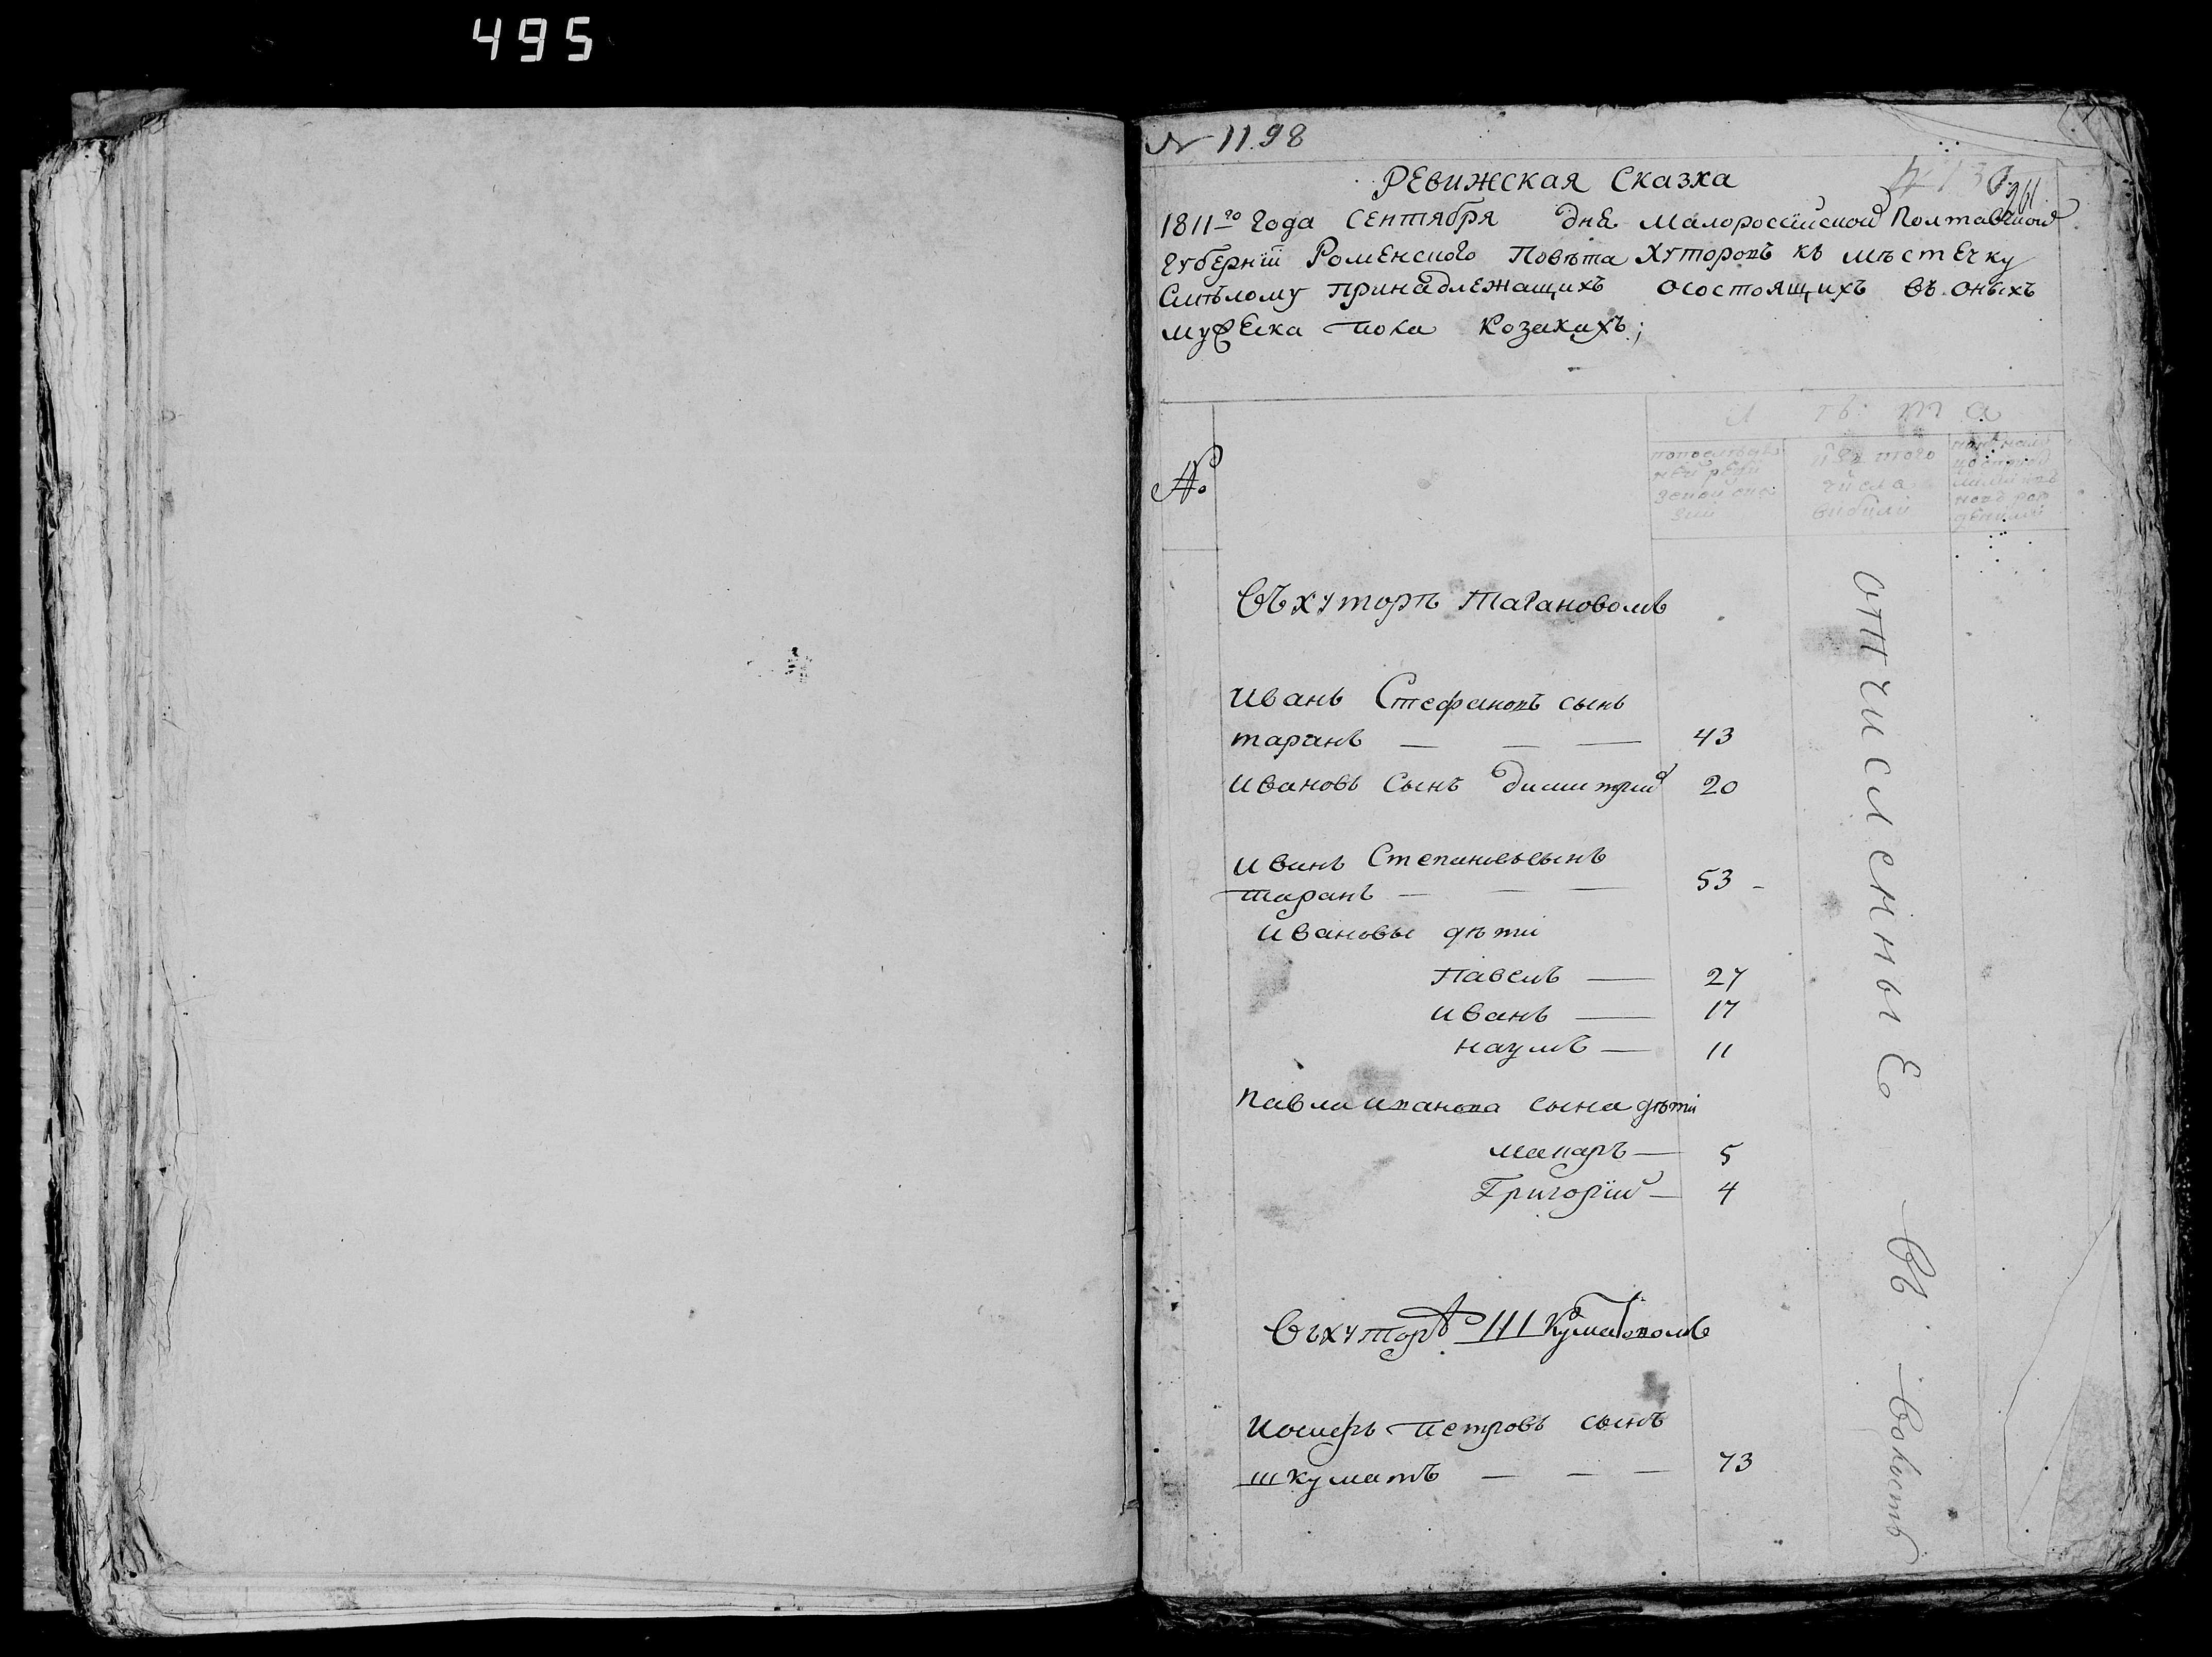 495
№ 1198
961
РЕвижская Сказка
1811го Года СЕнтября дня малороссїиской Полтавской
Губернїи РомЕнского Повѣта Хуторовъ къ мѣстЕчку
Смѣлому принадлежащихъ осостоящихъ въ оныхъ
мужЕска пола Козакахъ;
№.
Л ѣ т а
попослѣдней ревизской сказки
изъ того числа выбыли
Въ хуторѣ
Иванъ Стефановъ сынъ
таранъ — — — 43
Ивановъ Сынъ димитрий 20
Иванъ Степановъ сынъ
таранъ — — — 53 -
Ивановы дѣти
Павелъ — 27
Иванъ — 17
наумъ — 11
Павла иванова сына дѣти
макаръ — 5
Григорїй — 4
Въ хуторѣ Шкуматовомъ
Иосифъ петровъ сынъ
шкуматъ — — — 73
отчисленныЕ въ волость